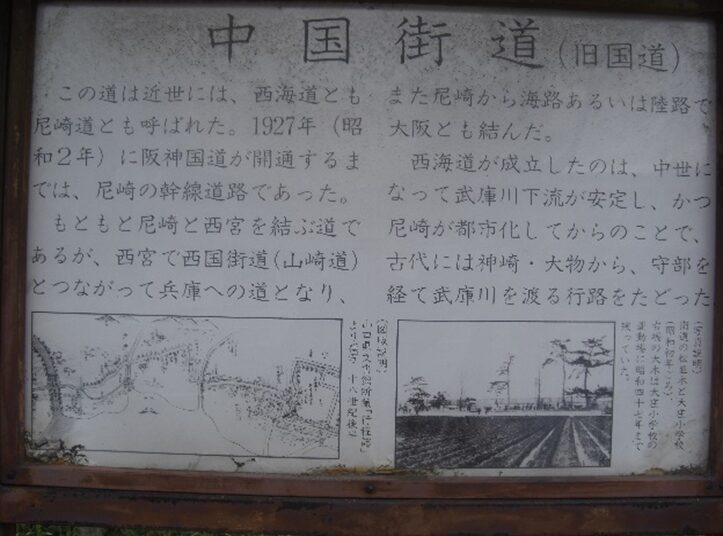 中国街道(旧国道)
この道は近世には、西海道とも
尼崎道とも呼ばれた。1927年(昭
和2年)に阪神国道が開通するま
では、尼崎の幹線道路であった。
もともと尼崎と西宮を結ぶ道で
あるが、西宮で西国街道(山崎道)
とつながって兵庫への道となり、
また尼崎から海路あるいは陸路で
大阪とも結んだ。
西海道が成立したのは、中世に
なって武庫川下流が安定し、かつ
尼崎が都市化してからのことで、
古代には神崎・大物から、守部を
経て武庫川を渡る行路をたどった
街道の松並木と大庄小学校
古株の大木は大庄小学校の
運動場に昭和四十七年まで
残っていた。